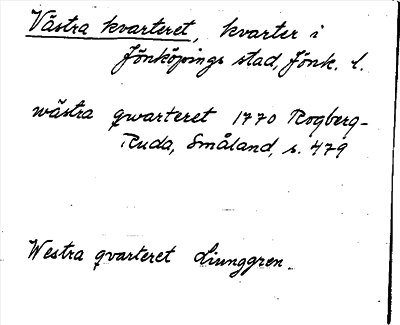 Västra kvarteret, kvarter i
Jönköpings stad, Jönk. l.
wästra qwarteret 1770 Rogberg-
Ruda, Småland, s. 479
Westra qvarteret Liunggren.